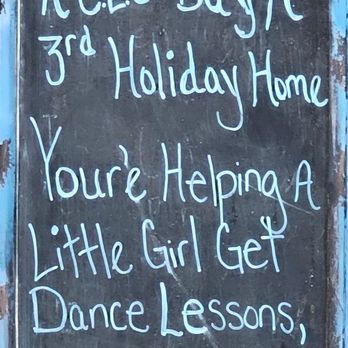 A C.E.O Buy A
3rd Holiday Home
You're Helping A
Little Girl Get
Dance Lessons,